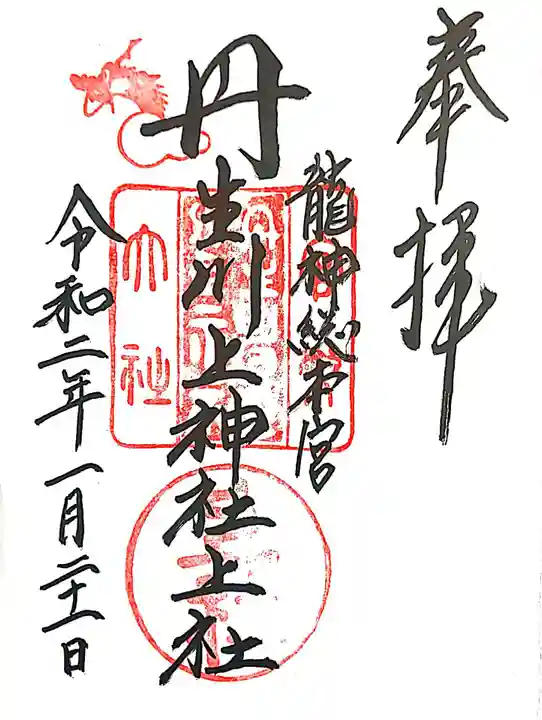 奉拝
龍神総本宮
丹生川上神社上社
大社
令和二年一月二十一日